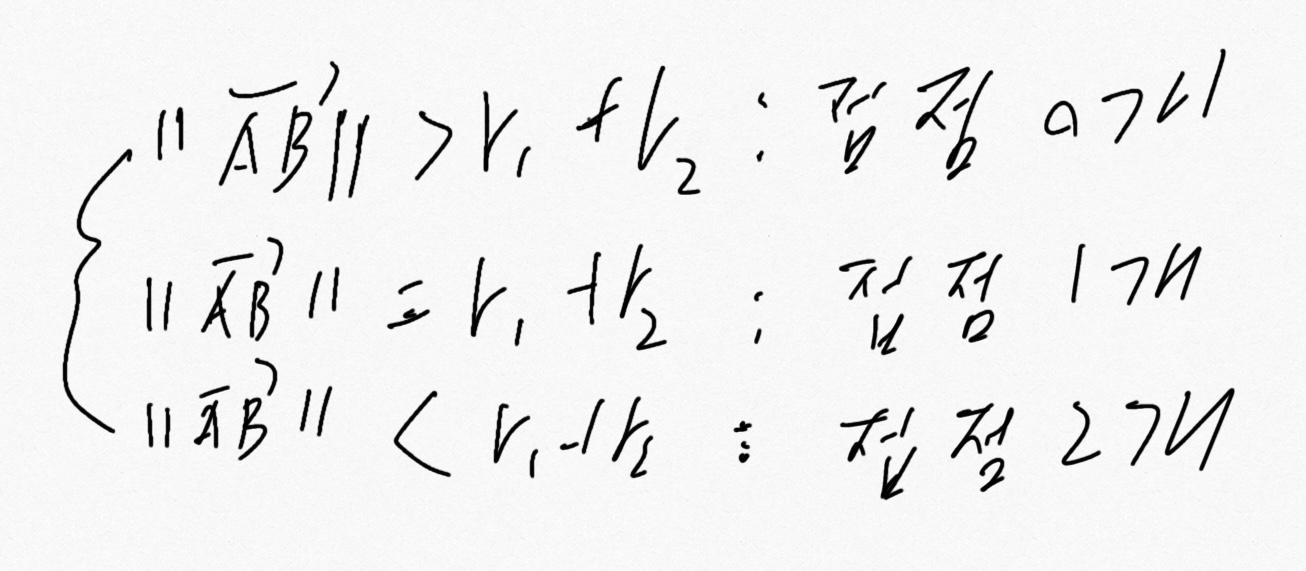 ‖AB⃗‖ > r₁ + r₂ :접점 0개
‖AB⃗‖ = r₁ + r₂ : 접점 1개
‖AB⃗‖ < r₁ + r₂ : 접점 2개